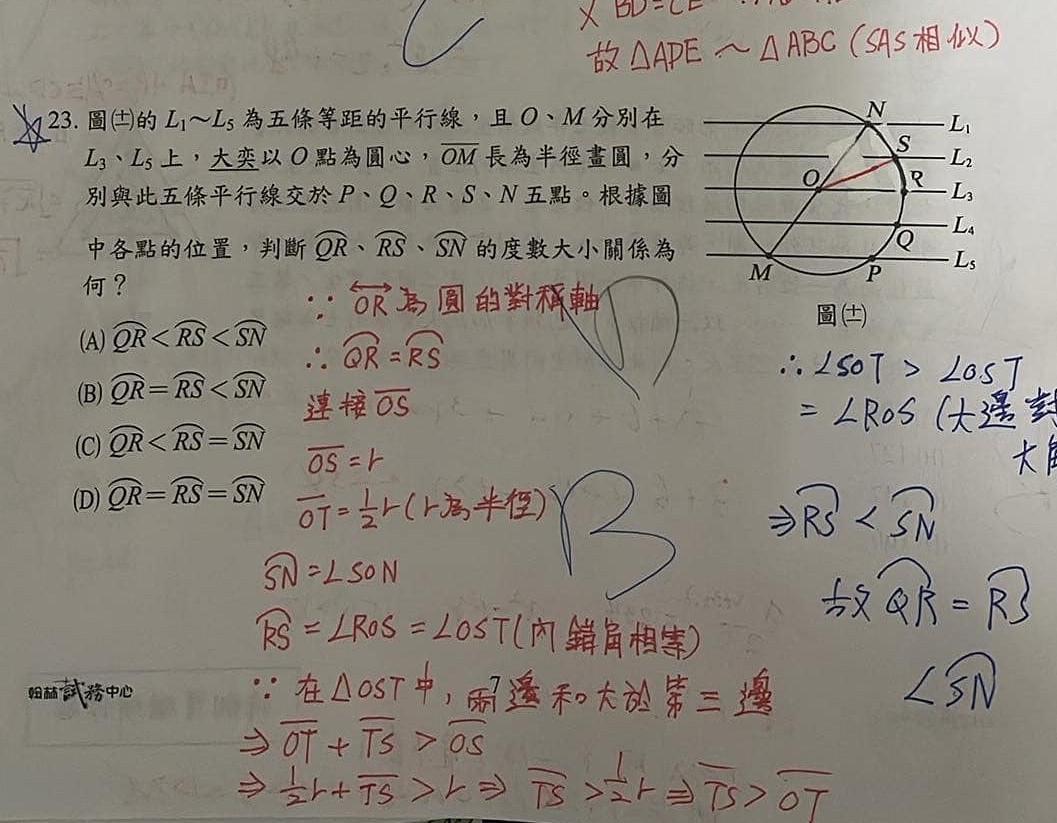 故△APE～△ABC(SAS相似)
23. 圖(士)的 L₁～L₅ 為五條等距的平行線，且 O、M 分別在
L₃、L₅ 上，大奕以 O 點為圓心，OM 長為半徑畫圓，分
別與此五條平行線交於 P、Q、R、S、N 五點。根據圖
中各點的位置，判斷 QR、RS、SN 的度數大小關係為
何？
(A) QR＜RS＜SN
(B) QR＝RS＜SN
(C) QR＜RS＝SN
(D) QR＝RS＝SN
N
S
O
R
Q
M
P
L₁
L₂
L₃
L₄
L₅
圖(士)
∵ OR為圓的對稱軸
∴ QR=RS
連接OS
OS=r
OT=1/2r(r為半徑)
SN=∠SON
RS=∠ROS=∠OST(內錯角相等)
∵ 在△OST中，兩邊和大於第三邊
⇒ OT+TS>OS
⇒ 1/2r+TS>r⇒ TS>1/2r⇒TS>OT
D
B
∴∠SOT>∠OST
=∠ROS(大邊對
大角
⇒RS<SN
故QR=RS
<SN
翰林試務中心